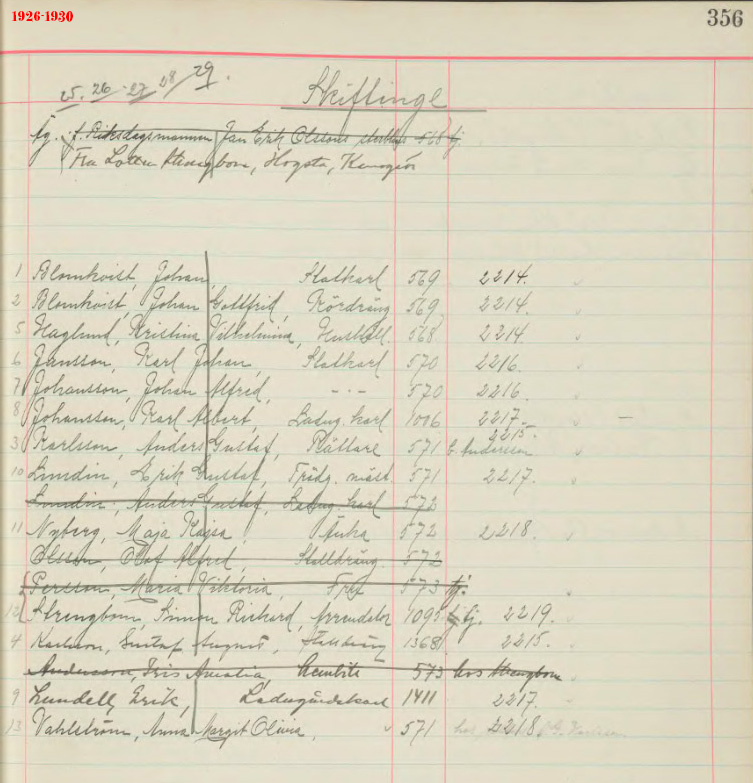 1926-1930
356
25. 26 - 27 28 29.
Skiftinge
fg. f. Riksdagsmannen Jan Erik Olssons sterbhus 568 fj.
Fru Lotten Strengbom, Hogsta,
1 Blomkvist, Johan, Statkarl 569 2214.
2 Blomkvist, Johan Gottfrid, Kördräng 569 2214.
5 Haglund, Kristina Vilhelmina, Hushåll. 568 2214
6 Jansson, Karl Johan, Statkarl 570 2216.
7 Johansson, Johan Alfred, -"- 570 2216.
8 Johansson, Karl Albert, Ladug. karl 1006 2217. —
2215.
3 Karlsson, Anders Gustaf, Rättare 571 Andersson
10 Lundin, Erik Gustaf, Trädg. mäst. 571 2217.
Lundin, Anders Gustaf, Ladug. karl 572
11 Nyberg, Maja Kajsa, Änka 572 2218.
Olsson, Olof Alfred, Stalldräng. 572
Persson, Maria Viktoria, 573 fj.
12 Strengbom, Simon Richard, Arrendator 1095 fj. 2219.
4 Karlsson, Gustaf August, Stalldräng 1368 2215.
Andersson, Iris Amalia, Hembitr 573 hos Strengbom
9 Lundell, Erik, Ladugårdskarl 1411 2217.
13 Vahlström, Anna Margit Olivia, 571 hos 2218 Karlsson